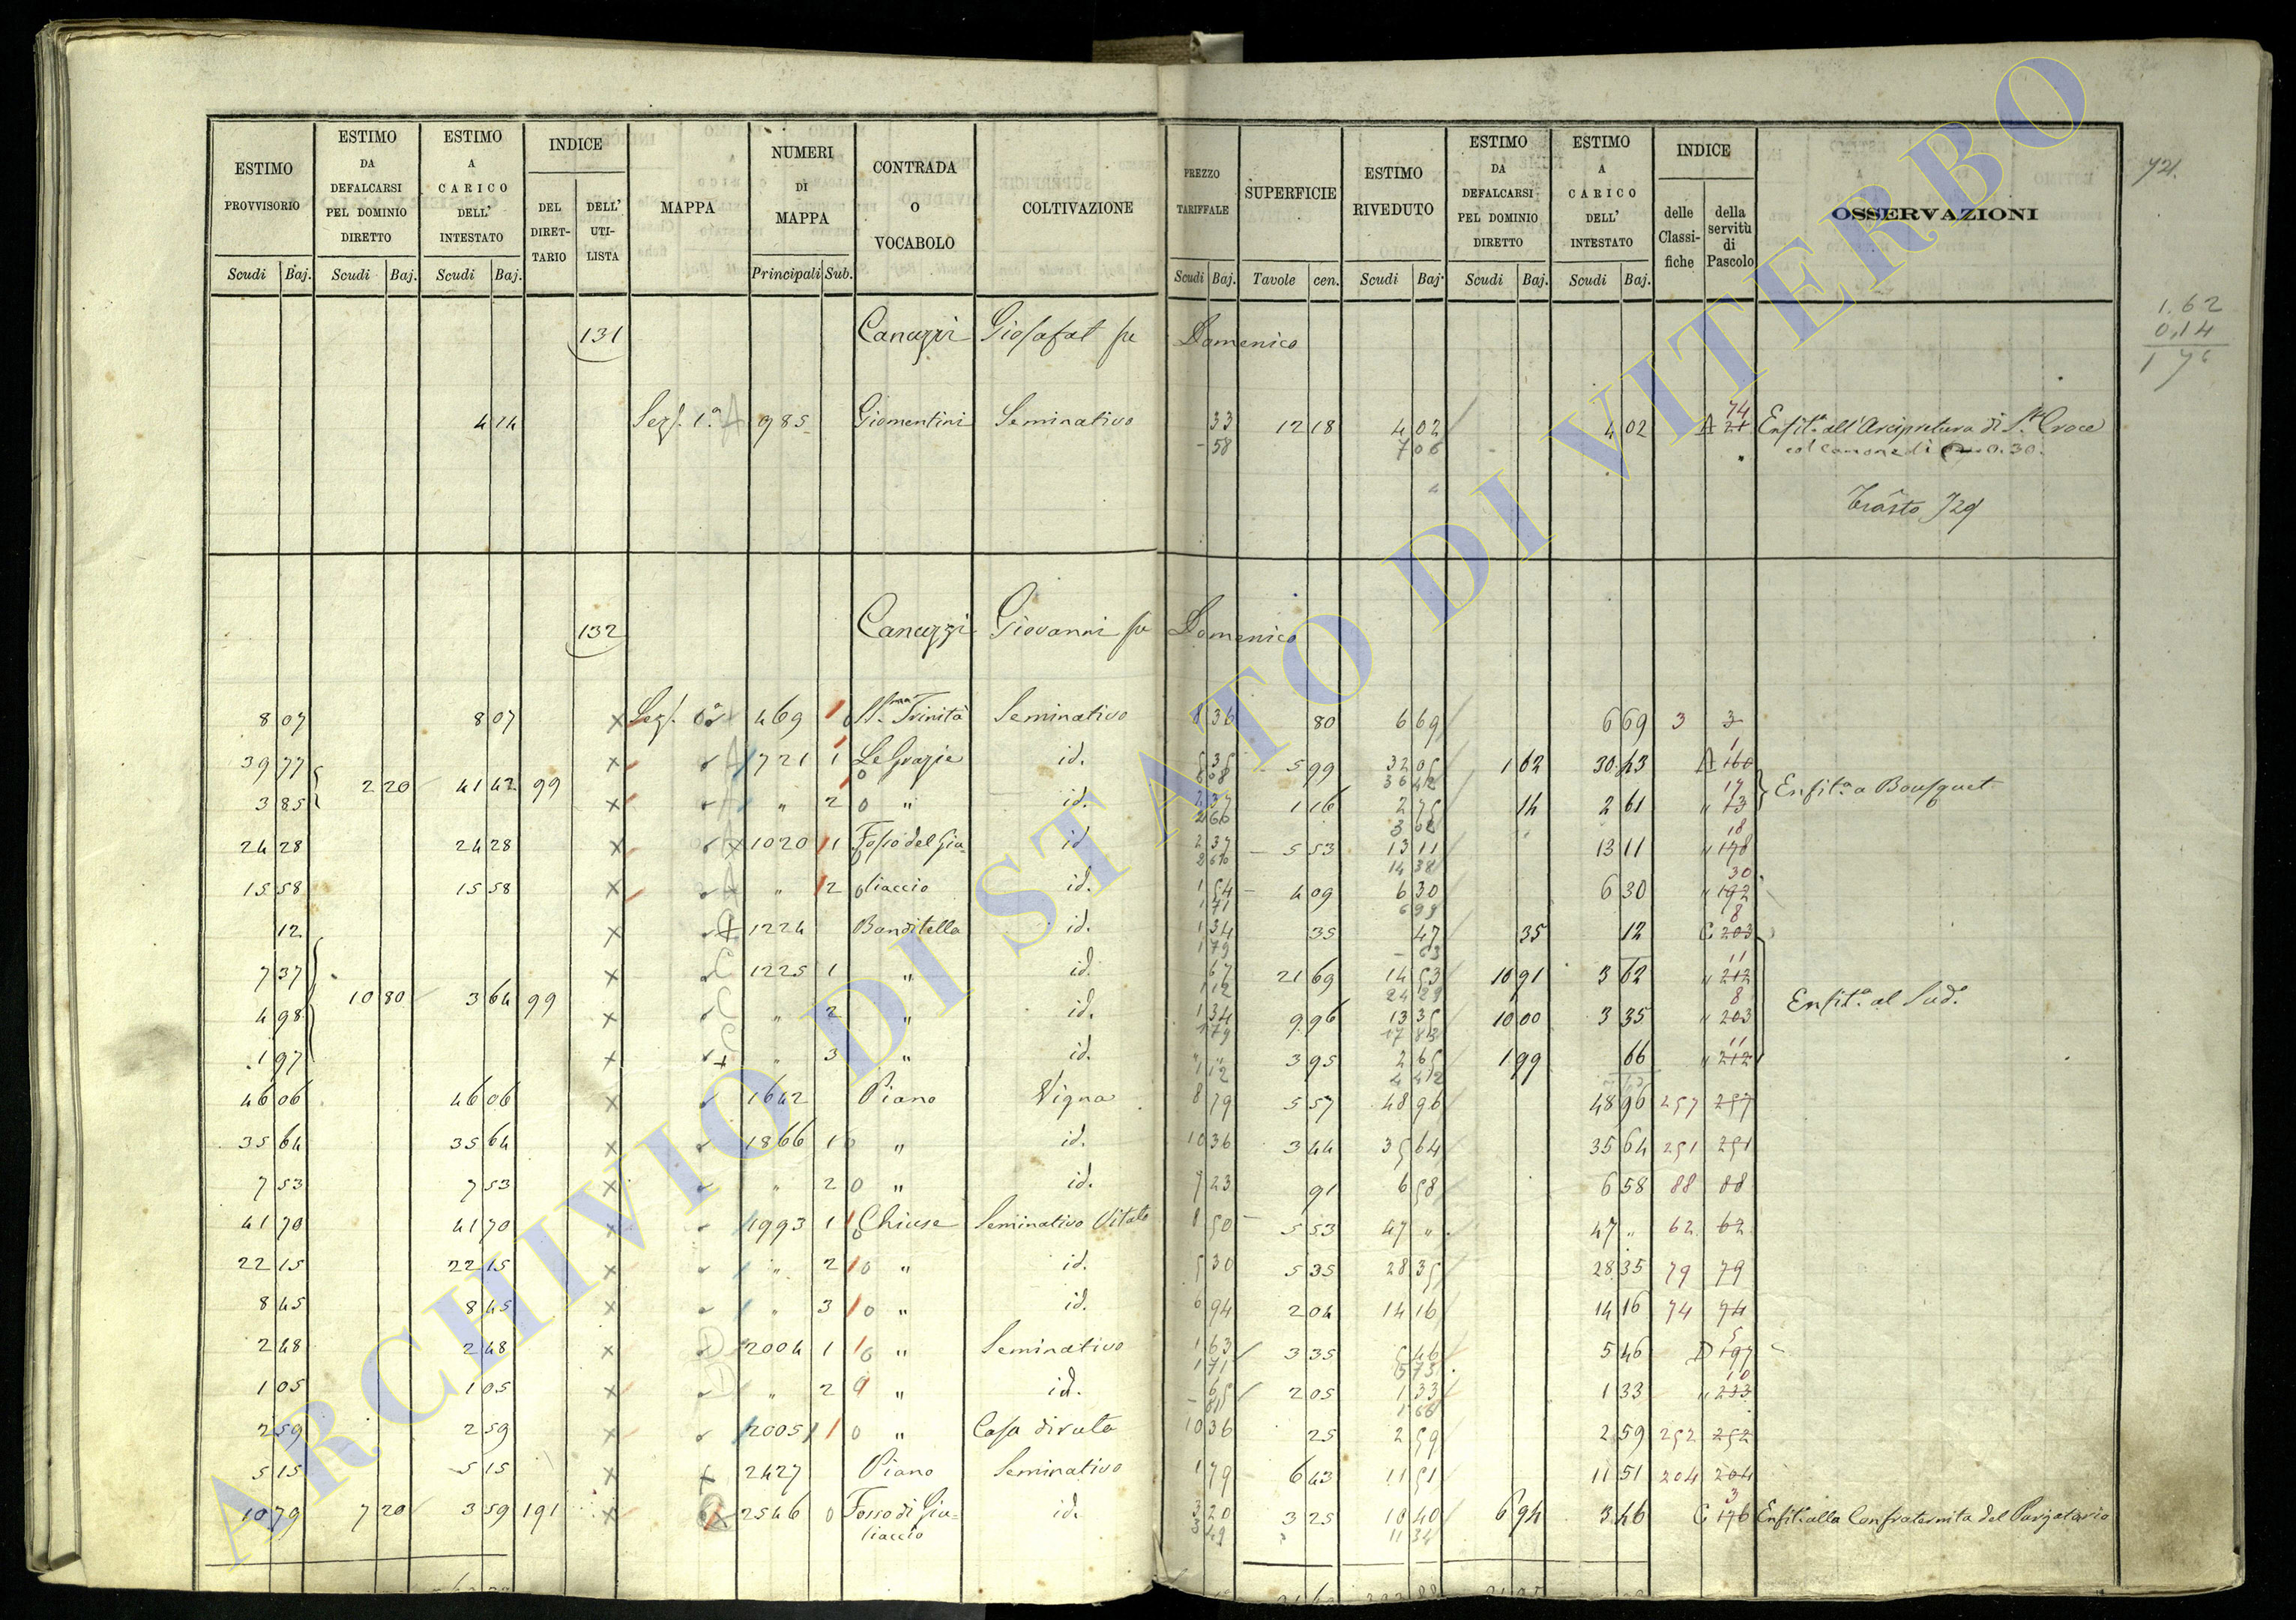 ESTIMO PROVVISORIO Scudi Baj.
ESTIMO DA DEFALCARSI PEL DOMINIO DIRETTO Scudi Baj.
ESTIMO A CARICO DELL' INTESTATO Scudi Baj.
INDICE DEL DIRETTARIO DELL' UTILISTA
MAPPA
NUMERI DI MAPPA Principali Sub.
CONTRADA O VOCABOLO
COLTIVAZIONE
PREZZO TARIFFALE Scudi Baj.
SUPERFICIE Tavole cen.
ESTIMO RIVEDUTO Scudi Baj.
ESTIMO DA DEFALCARSI PEL DOMINIO DIRETTO Scudi Baj.
ESTIMO A CARICO DELL' INTESTATO Scudi Baj.
INDICE delle Classifiche della servitù di Pascolo
OSSERVAZIONI
721.
1.62
0,14
1 76
131 Canuzzi Giosafat fu Domenico
4 14 Sez. 1.a 985 Giomentini Seminativo 33 12 18 4 02 4 02 A 21 74 Enfit.a all'Arcipretura di S.ta Croce
58 7 06 col canone di 0.30.
Trasto 729
132 Canuzzi Giovanni fu Domenico
8 07 8 07 Sez. 469 SS.ma Trinità Seminativo 8 36 80 6 69 6 69 3 3
39 77 1721 1 Le Grazie id. 5 35 5 99 32 05 1 62 30 43 A 160 1
2 20 41 42 99 Enfit.a a Bousquet
3 85 " 2 " id. 2 37 1 16 2 75 14 2 61 " 73 17
24 28 24 28 1020 1 Fosso del Giu- id. 2 37 5 53 13 11 13 11 " 178 18
15 58 15 58 " 2 liaccio id. 1 54 4 09 6 30 6 30 " 192 30
12 1224 Banditella id. 1 34 35 47 35 12 C 203 8
7 37 1225 1 " id. 67 21 69 14 53 10 91 3 62 " 212 11
10 80 3 64 99 Enfit.a al Sud.o
4 98 " 2 " id. 1 34 9 96 13 35 10 00 3 35 " 203 8
1 97 " 3 " id. " " 3 95 2 65 1 99 66 " 212 11
46 06 46 06 1642 Piano Vigna 8 79 5 57 48 96 48 96 257 257
35 64 35 64 1866 1 " id. 10 36 3 44 35 64 35 64 251 251
7 53 7 53 " 2 " id. 7 23 91 6 58 6 58 88 88
41 70 41 70 1993 1 Chiuse Seminativo Vitato 8 50 5 53 47 " 47 " 62 62
22 15 22 15 " 2 " id. 5 30 5 35 28 35 28 35 79 79
8 45 8 45 " 3 " id. 6 94 2 04 14 16 14 16 74 74
2 48 2 48 2004 1 " Seminativo 1 63 3 35 5 46 5 46 D 197 5
1 05 1 05 " 2 " id. 65 2 05 1 33 1 33 " 233 10
2 59 2 59 2005 " Casa diruta 10 36 25 2 59 2 59 252 252
5 15 5 15 2427 Piano Seminativo 1 79 6 43 11 51 11 51 204 204
10 79 7 20 3 59 191 2546 Fosso di Giu- id. 3 20 3 25 10 40 6 94 3 46 C 176 3 Enfit.a alla Confraternita del Purgatorio
liaccio 3 49 11 34
ARCHIVIO DI STATO DI VITERBO